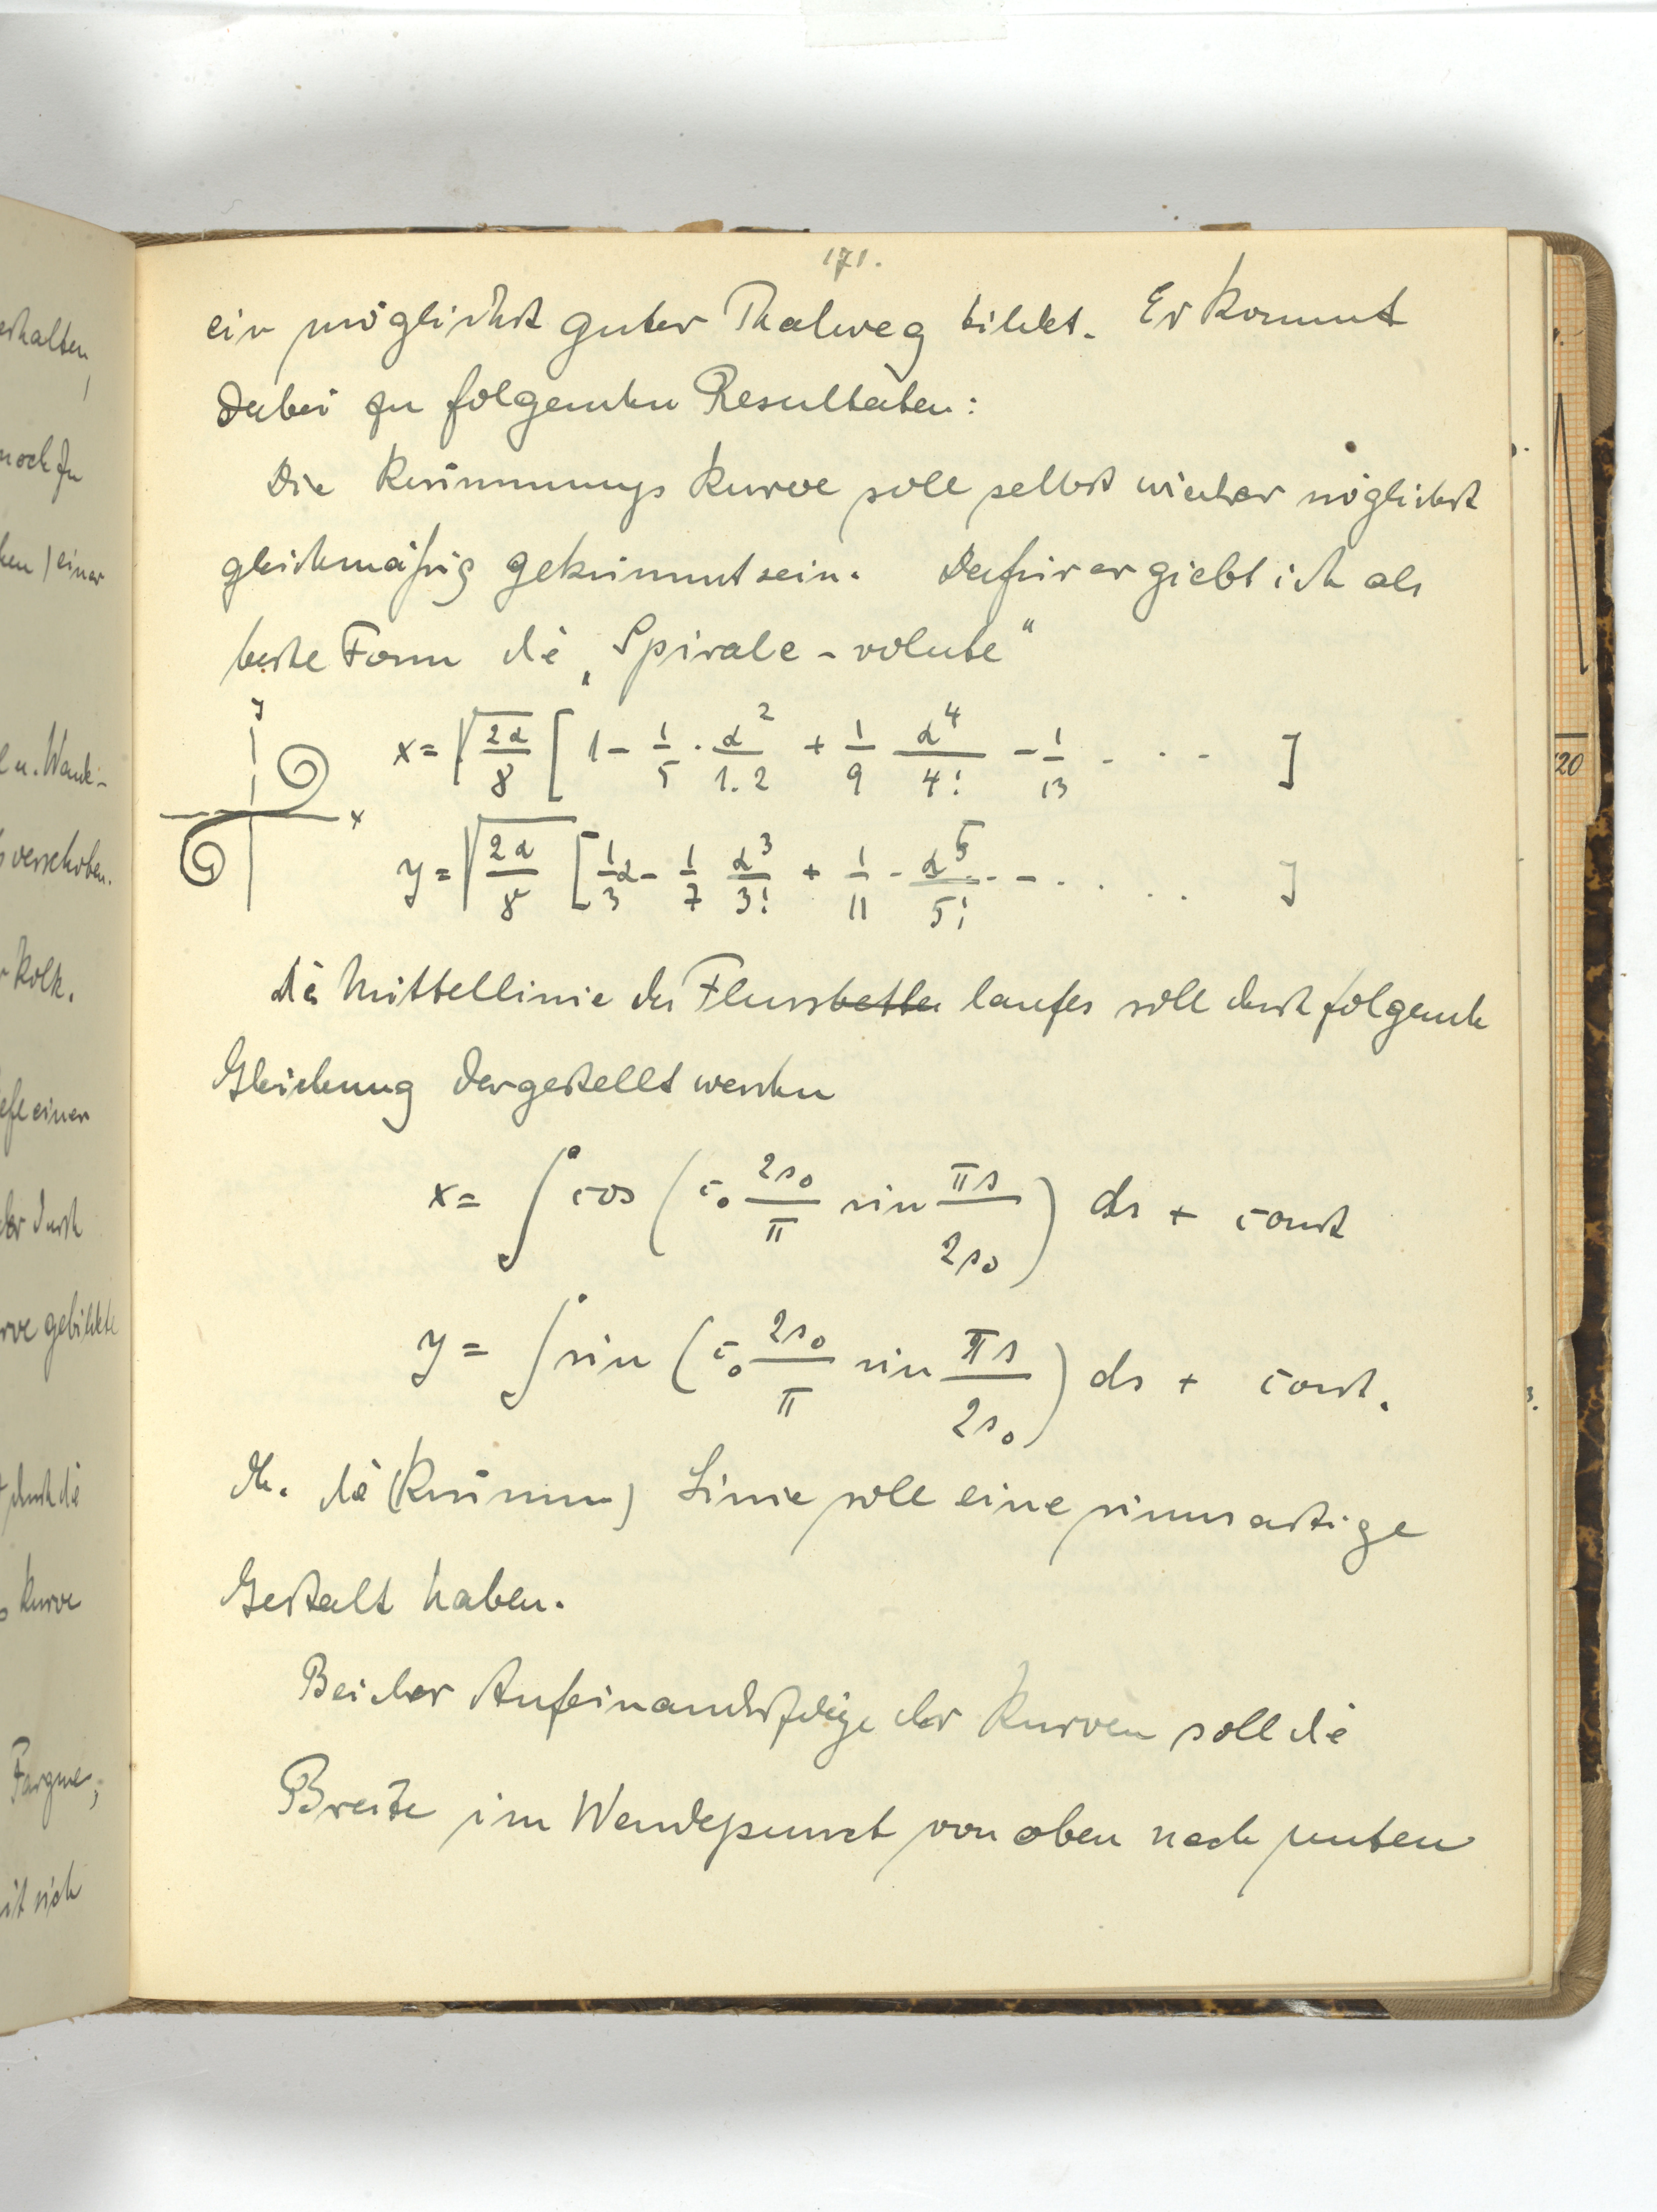 erhalten,
noch zu
ken) einer
l u. Wank-
verschoben.
Kolk.
einer
durch
rve gebildete
durch die
Kurve
Fargue,
mit sich
171.
ein möglichst guter Thalweg bildet. Er kommt
dabei zu folgenden Resultaten:
Die Krümmungskurve soll selbst wieder möglichst
gleichmäßig gekrümmt sein. Dafür ergiebt sich als
beste Form die „Spirale-volute“
y
x
x = √(2α/8) [ 1 - 1/5 · α²/1.2 + 1/9 α⁴/4! - 1/13 - · · - ]
y = √(2α/8) [ 1/3 α - 1/7 α³/3! + 1/11 - α⁵/5! · - - · . . . ]
die Mittellinie des Flussbettes laufes soll durch folgende
Gleichung dargestellt werden
x = ∫ cos ( c₀ 2s₀/π sin πs/2s₀ ) ds + const
y = ∫ sin ( c₀ 2s₀/π sin πs/2s₀ ) ds + const.
dh. die (Krümm) Linie soll eine sinusartige
Gestalt haben.
Bei der Aufeinanderfolge der Kurven soll die
Breite im Wendepunct von oben nach unten
20
3.